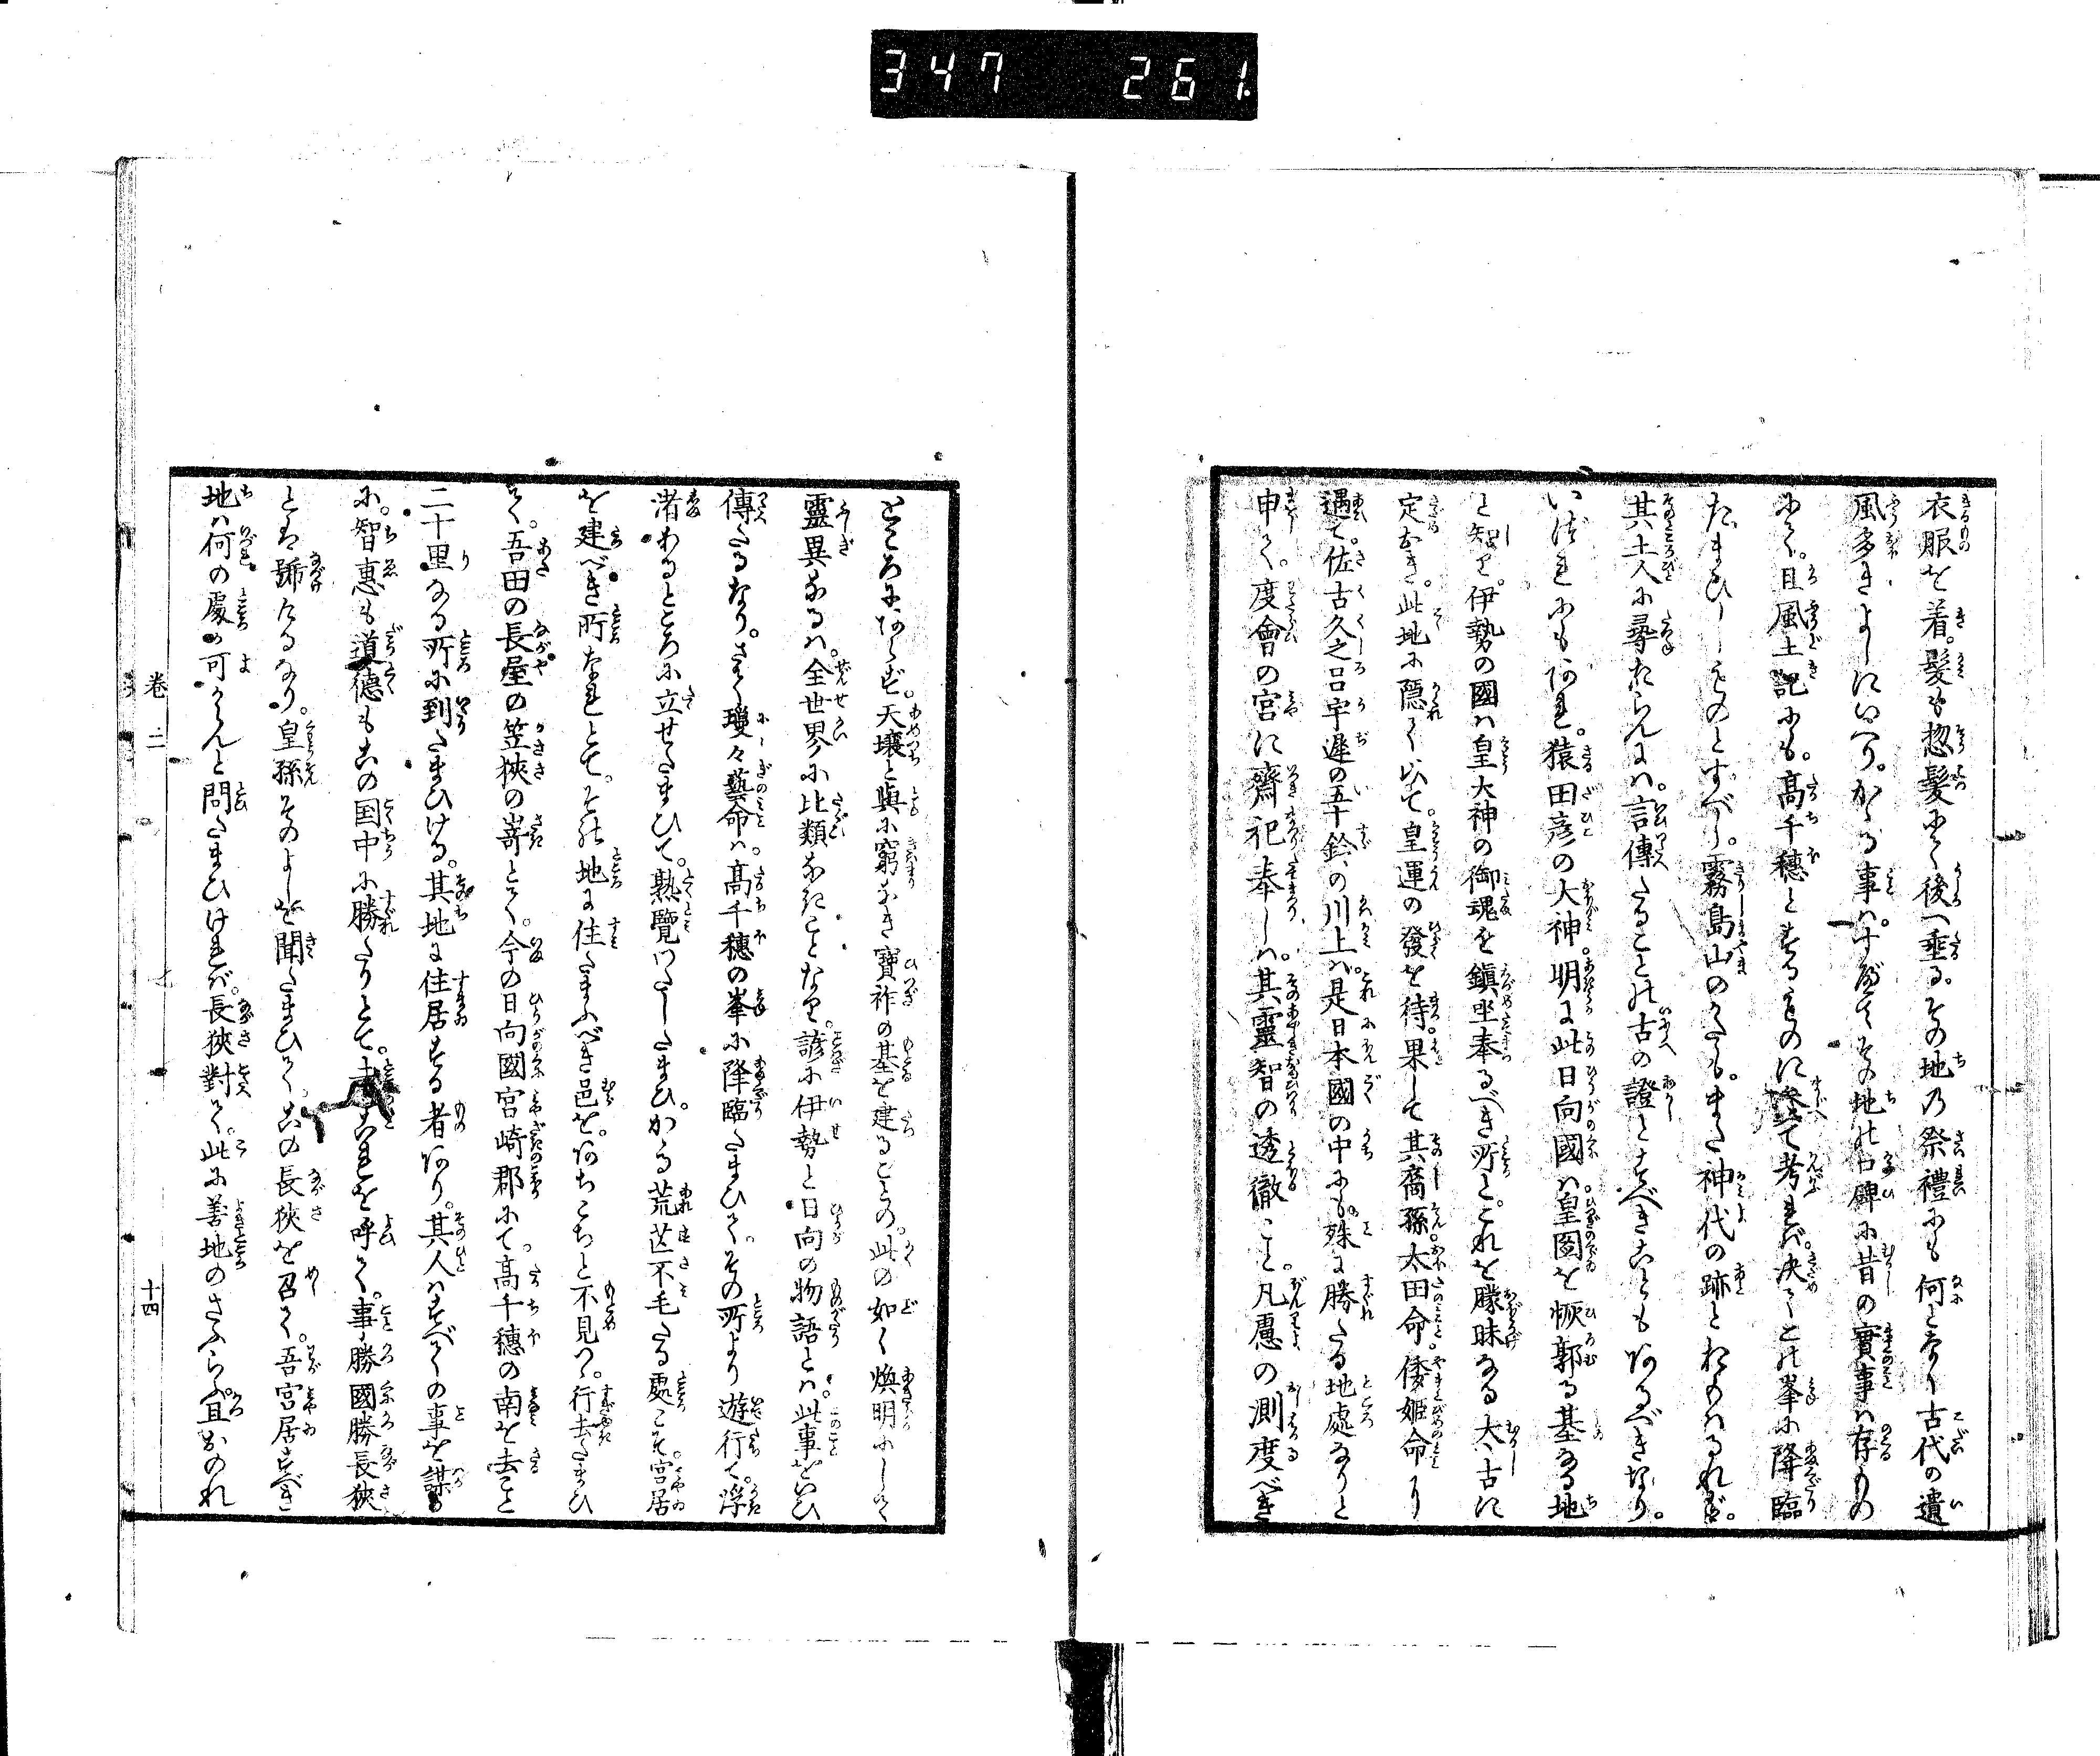 347 261.
衣服を着。髪も惣髪にて後へ垂る。その地乃祭禮にも何となく古代の遺
風多きよしにいへり。かゝる事ハ。すべてその地の口碑に昔の實事ハ存もの
にて。且風土記にも。高千穂とするものに泰て考れバ。決てこの峯に降臨
たまひしものとすべし。霧島山のかたも。また神代の跡とおもハるれど。
其土人に尋たらんにハ。言傳たることの古の證とすべきことも阿るべきなり。
いづれにも阿れ。猿田彦の大神。明に此日向國ハ皇圖を恢郭る基なる地
と知り。伊勢の國ハ皇大神の御魂を鎮坐奉るべき所と。これを朦昧なる大古に
定おき。此地に隠て以て。皇運の發を待。果して其裔孫太田命。倭姫命に
遇て。佐古久之呂宇遅の五十鈴の川上ハ是日本國の中にも。殊に勝たる地處なりと
申て。度會の宮に齋祀奉しハ。其靈智の透徹こと。凡慮の測度べき
ところに阿らず。天壌と與に窮なき寶祚の基を建ることの。此の如く煥明にして
靈異なるハ。全世界に比類なきことなり。諺に伊勢と日向の物語とハ。此事をいひ
傳たるなり。さて瓊々藝命ハ。高千穂の峯に降臨たまひて。その所より遊行て。浮
渚あるところに立せたまひて。熟覽ハたしたまひ。かゝる荒芒不毛たる處こそ。宮居
を建べき所なれとて。その地に住たまふべき邑を。阿ちこちと不見つゝ。行去たまひ
て。吾田の長屋の笠狹の嵜とて。今の日向國宮崎郡にて。高千穂の南を去こと
二十里なる所に到たまひける。其地に住居する者阿り。其人ハすべての事を謀る
に。智惠も道德もこの国中に勝たりとて。これを呼て。事勝國勝長狹
とは號けたるなり。皇孫そのよしを聞たまひて。この長狹を召て。吾宮居すべき
地ハ何の處か可からんと問たまひければ。長狹對て。此に善地のさふらふ。宜おのれ
卷二
十四